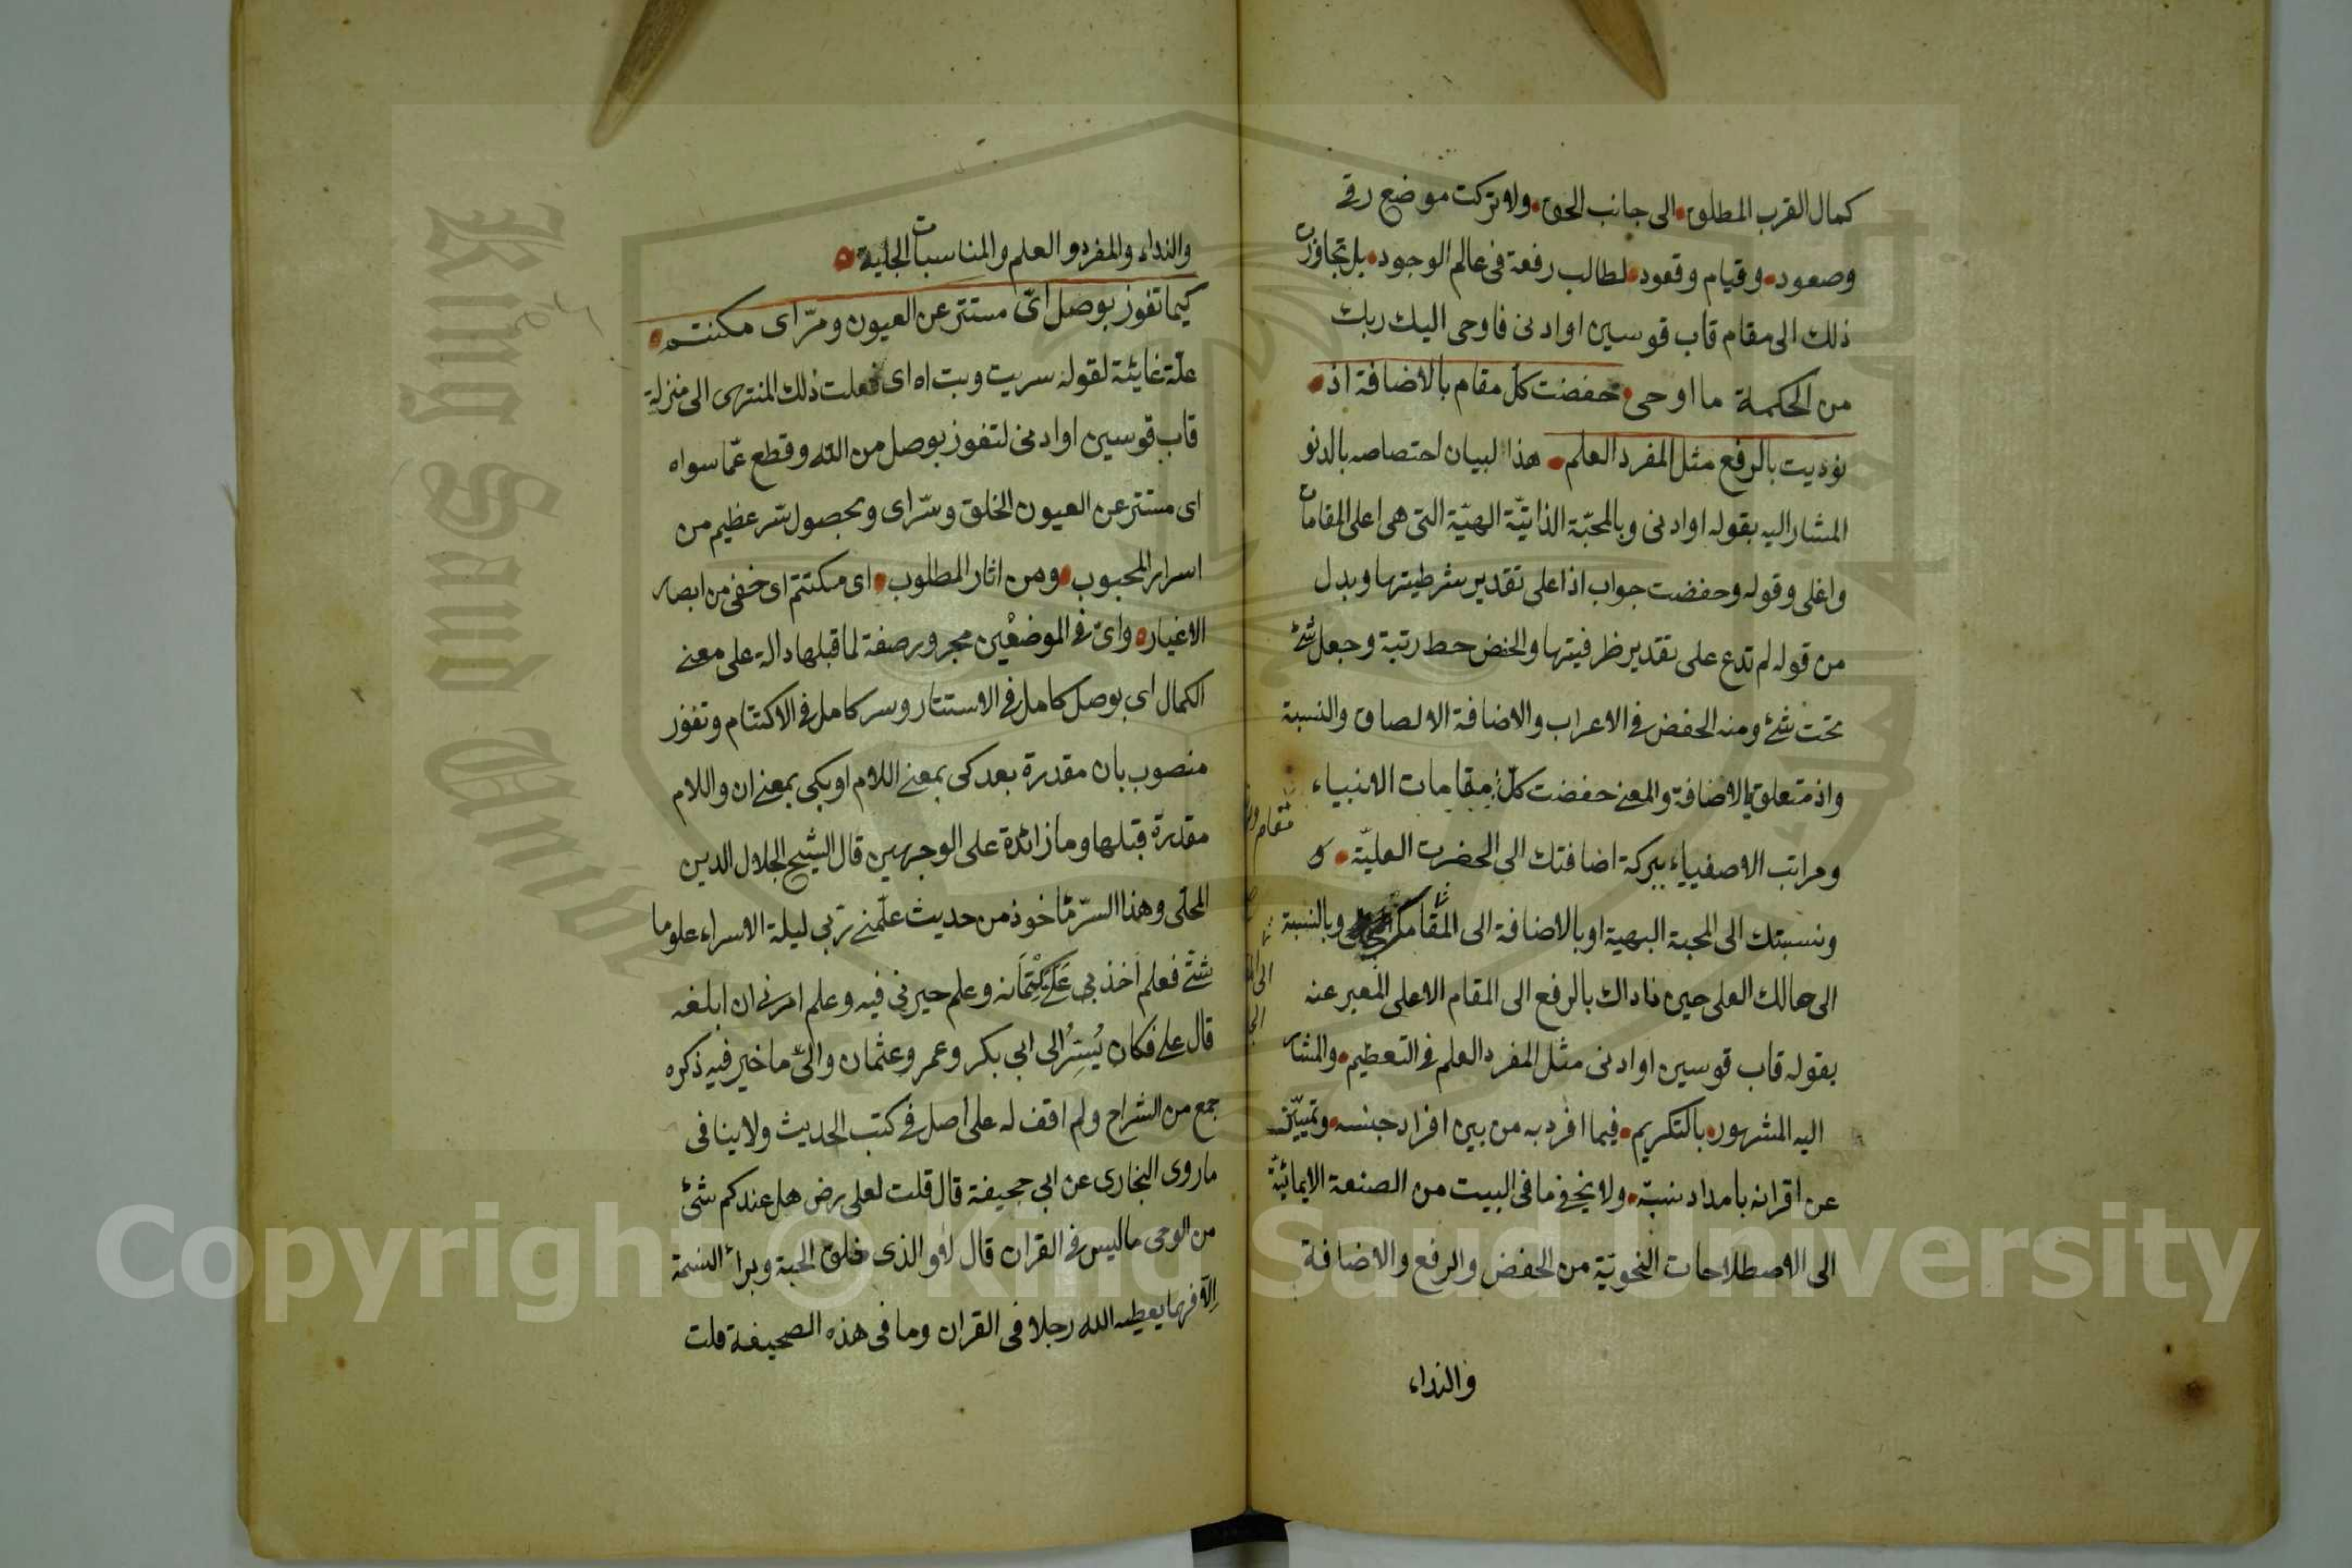 كمال القرب المطلق الى جانب الحق ولا تركت موضع رقى
وصعود وقيام وقعود لطالب رفعة فى عالم الوجود بل تجاوزت
ذلك الى مقام قاب قوسين او ادنى فاوحى اليك ربك
من الحكمة ما اوحى خفضت كل مقام بالاضافة اذ
نوديت بالرفع مثل المفرد العلم هذا لبيان اختصاصه بالدنو
المشار اليه بقوله او ادنى وبالمحبّة الذاتيّة الهيّة التى هى اعلى المقامات
واغلى وقوله وخفضت جواب اذا على تقدير شرطيتها وبدل
من قوله لم تدع على تقدير ظرفيتها والخفض حط رتبة وجعل شئ
تحت شئ ومنه الخفض فى الاعراب والاضافة الالصاق والنسبة
واذ متعلق بالاضافة والمعنى خفضت كلّ مقامات الانبياء
ومراتب الاصفياء ببركة اضافتك الى الحضرت العليّة
ونسبتك الى المحبة البهية او بالاضافة الى المقام وبالنسبة
الى حالك العلى حين ناداك بالرفع الى المقام الاعلى المعبر عنه
بقوله قاب قوسين او ادنى مثل المفرد العلم فى التعظيم والمشار
اليه المشهور بالتكريم فيما افرد به من بين افراد جنسه وتميّز
عن اقرانه بامداد ولا يخفى ما فى البيت من الصنعة الايمائيّة
الى الاصطلاحات النحويّة من الخفض والرفع والاضافة
والنداء
مقام
والنداء والمفرد والعلم والمناسبات الجلية
كيما تفوز بوصل اىّ مستتر عن العيون وسرّ اى مكتتم
علة غائيّة لقوله سريت وبت اه اى فعلت ذلك المنتهى الى منزلة
قاب قوسين او ادنى لتفوز بوصل من الله وقطع عمّا سواه
اى مستتر عن العيون الخلق وسرّ اى وبحصول سّر عظيم من
اسرار المحبوب ومن اثار المطلوب اى مكتتم اى خفى من ابصار
الاغيار واىّ فى الموضعين مجرور صفة لما قبلها دالة على معنى
الكمال اى بوصل كامل فى الاستتار وسر كامل فى الاكتتام وتفوز
منصوب بان مقدرة بعد كى بمعنى اللام او بكى بمعنى ان واللام
مقدرة قبلها وما زائدة على الوجهين قال الشيخ الجلال الدين
المحلى وهذا السرّ مأخوذ من حديث علّمنى ربى ليلة الاسراء علوما
شتّى فعلم اخذ بى عَلَىَّ كِتْمَانه وعلم خيرنى فيه وعلم امرنى ان ابلغه
قال على فكان يُسِرّ الى ابى بكر وعمر وعثمان والىّ ما خير فيه ذكره
جمع من الشراح ولم اقف له على اصل فى كتب الحديث ولا ينافى
ما روى البخارى عن ابى جحيفة قال قلت لعلى رض هل عندكم شئ
من الوحى ما ليس فى القران قال لا والذى خلق الحبة وبرأ النسمة
الاّ فهما يعطيه الله رجلا فى القران وما فى هذه الصحيفة قلت
King Saud
Copyright © King Saud University